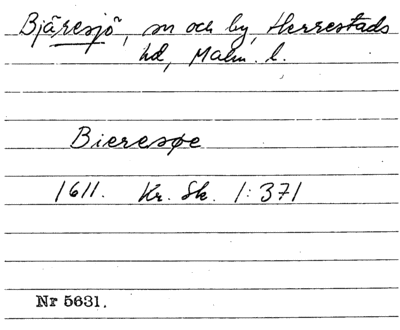 Bjäresjö, sn och by, Herrestads
hd, Malm. l.
Bieresøe
1611. Kr. Sk. 1:371
Nr 5631.